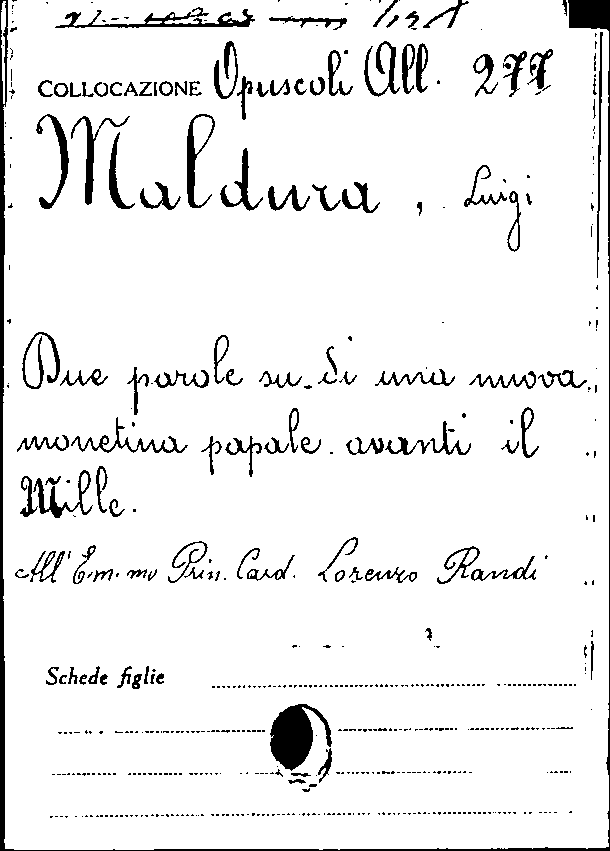 COLLOCAZIONE Opuscoli All. 277
Maldura, Luigi
Due parole su di una nuova
monetina papale avanti il
Mille.
All' Em.mo Prin. Card. Lorenzo Randi
Schede figlie